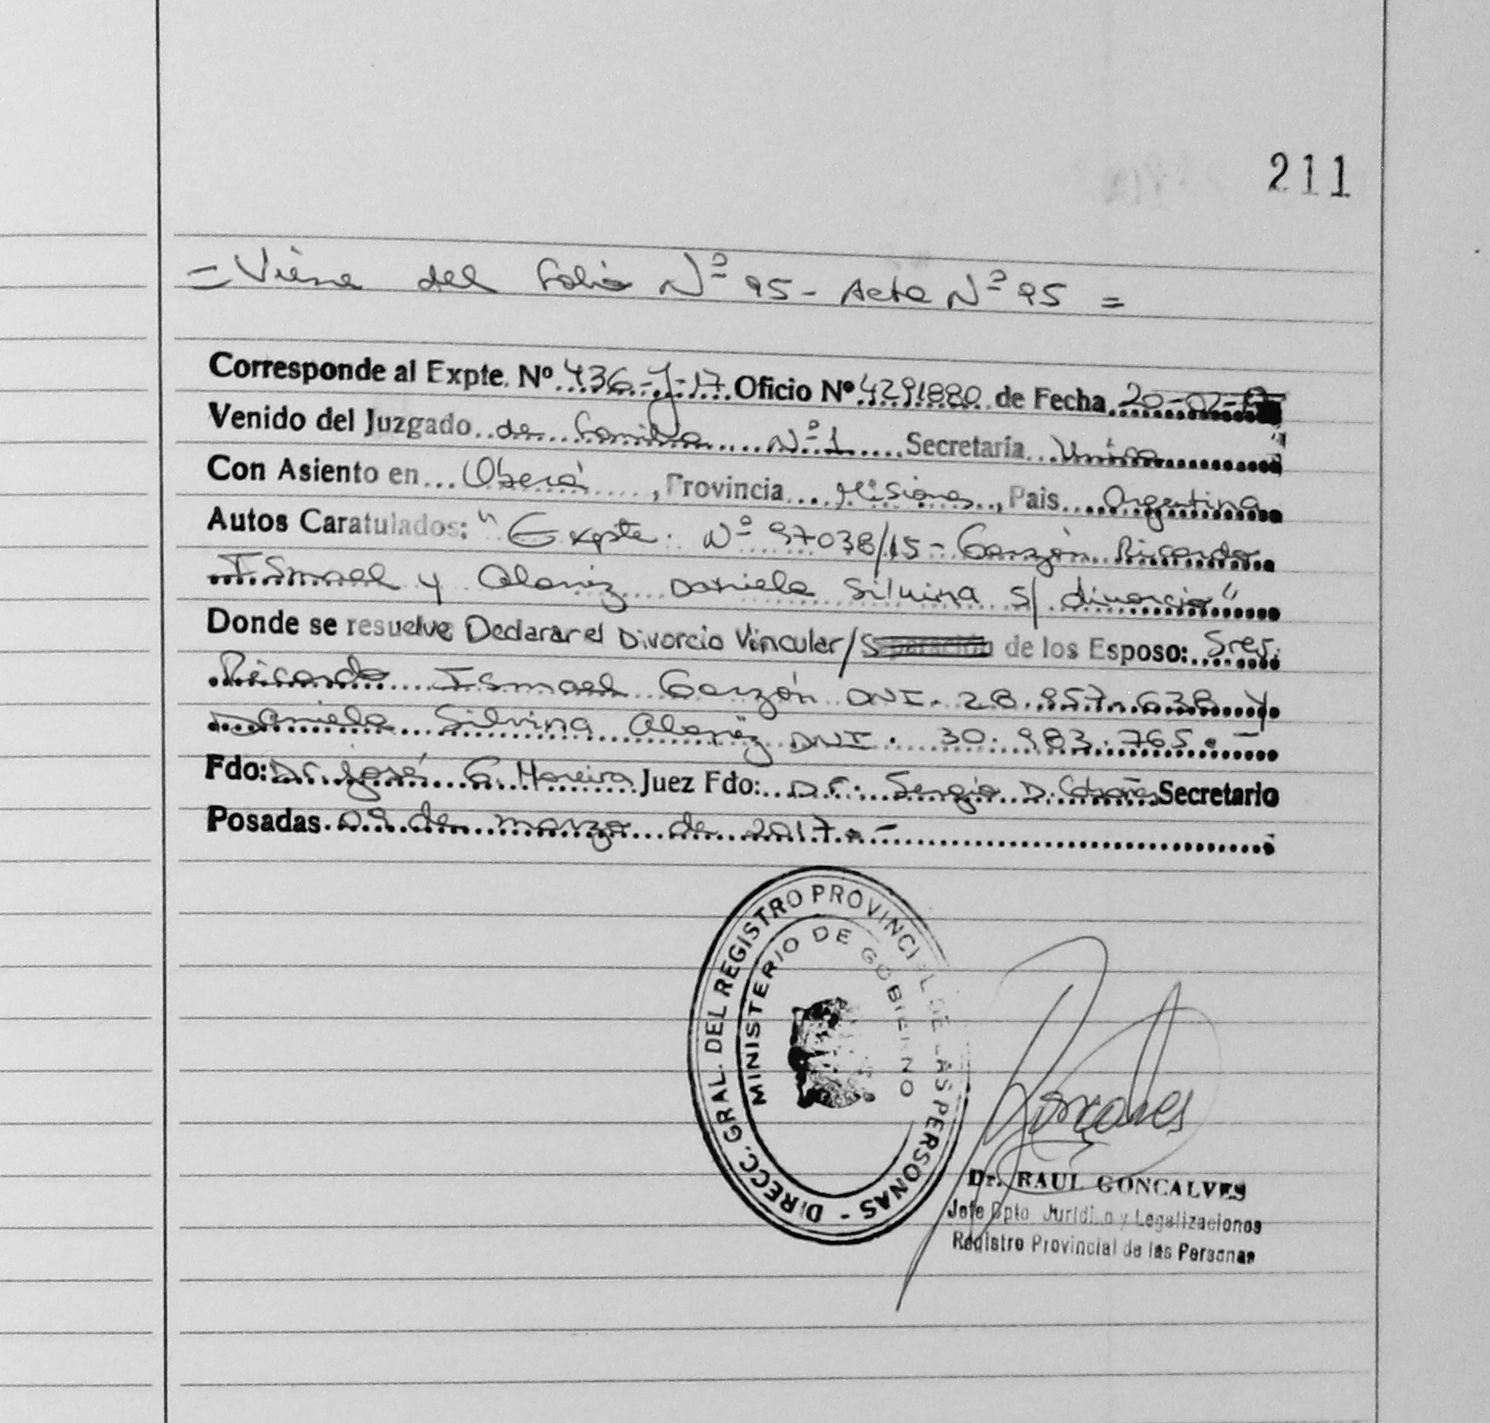 211
= Viene del folio Nº 95 - Acta Nº 95 =
Corresponde al Expte. Nº 436-J-17 Oficio Nº 4291880 de Fecha 20-02-17
Venido del Juzgado de Familia Nº 1 Secretaría Única
Con Asiento en Oberá, Provincia Misiones, Pais Argentina
Autos Caratulados: "Expte. Nº 97038/15 - Garzón Ricardo
Ismael y Alaniz Daniela Silvina s/ divorcio"
Donde se resuelve Declarar el Divorcio Vincular/Separación de los Esposo: Sres.
Ricardo Ismael Garzón DNI. 28.957.638 y
Daniela Silvina Alaniz DNI. 30.983.765.-
Fdo: Dr. José G. Moreira Juez Fdo: Dr. Sergio D. Secretario
Posadas 09 de marzo de 2017.-
DIRECC. GRAL. DEL REGISTRO PROVINCIAL DE LAS PERSONAS -
MINISTERIO DE GOBIERNO
Goncalves
Dr. RAUL GONCALVES
Jefe Dpto. Jurídico y Legalizaciones
Registro Provincial de las Personas